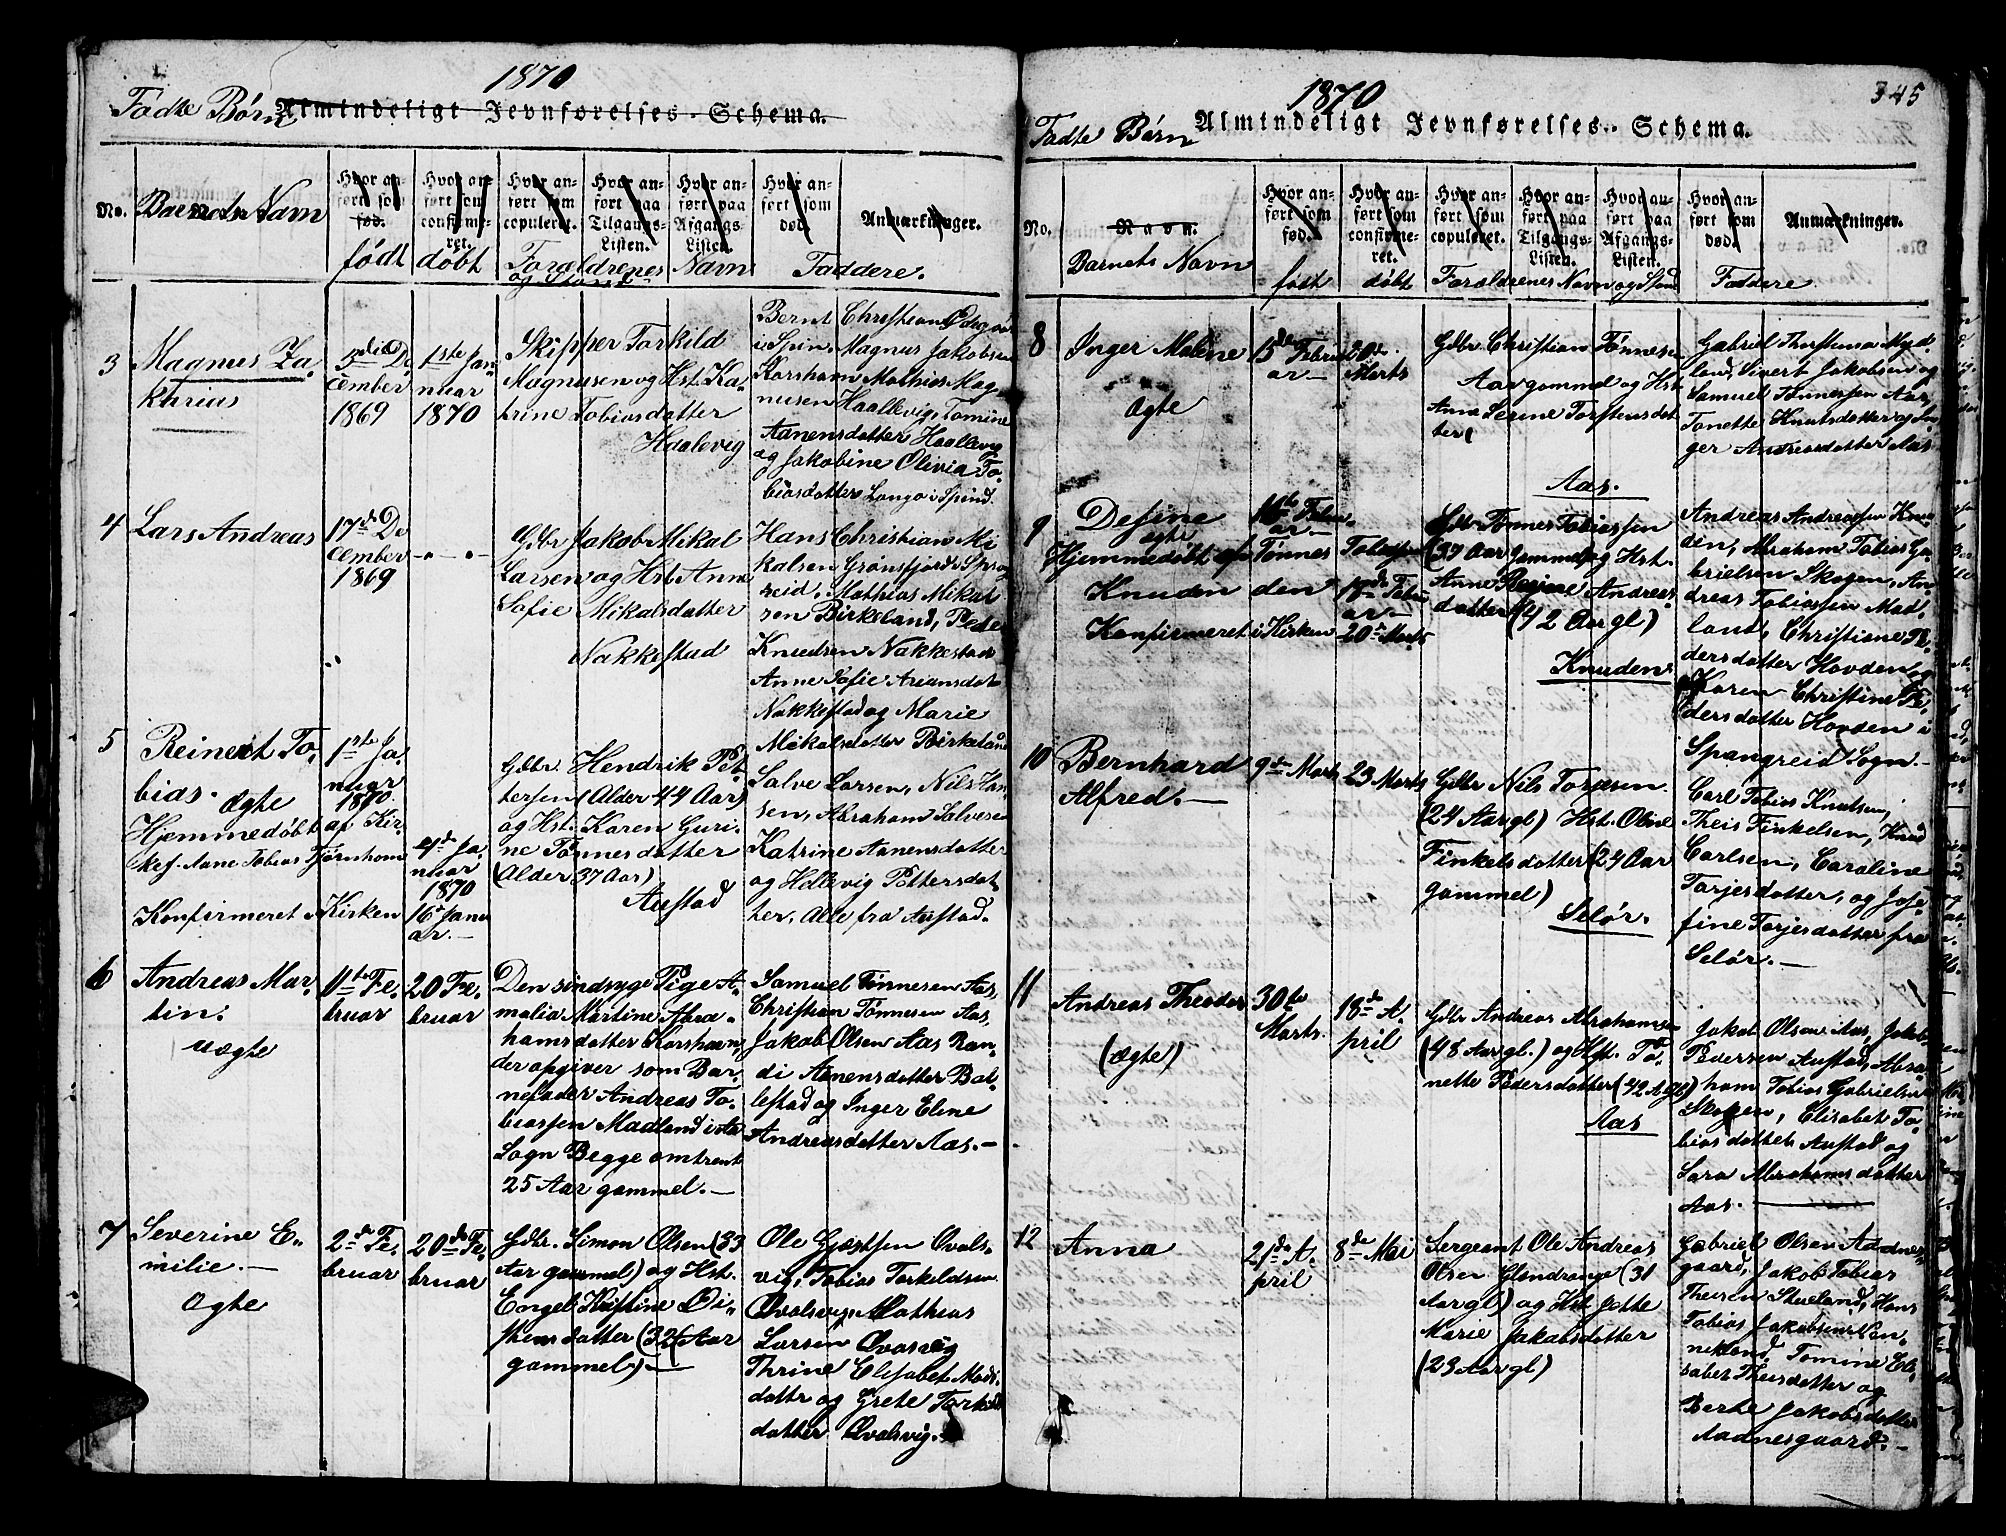 1870
Fødte Børn
Almindeligt Jevnførelses-Schema.
No.
Barnets Navn
Hvor anført som fød.
født
Hvor anført som confirmeret.
døbt
Hvor anført som copuleret.
Hvor anført paa Tilgangs-Listen.
Hvor anført paa Afgangs-Listen.
Forældrenes Navn
og Stand
Hvor anført som død.
Anmærkninger.
Faddere.
3
Magnus Za-
karius
3die De-
cember
1869
1ste Jan-
nuar
1870
Skipper Torkild
Magnusen og Hst. Ka-
trine Tobiasdatter
Haalevig
Bernt Christian
i Spin, Magnus Jakobsen
Korshavn Mathias Mag-
nusen Haallevig, Tomine
Aanensdatter Haallevig
og Jakobine Olivia To-
biasdatter Longa i Spind.
4
Lars Andreas
17de De-
cember
1869
Gdbr Jakob Mikal
Larsen og Hst. Anne
Sofie Mikalsdatter
Nakkestad
Hans Christian Mi-
kalsen Grønsfjord,
Mathias Mikal
sen Birkeland, Peder
Knudsen Nakkestad
Anne Sofie Arensdat
Nakkestad og Marie
Mikalsdatter Birkeland
5
Reinert To-
bias.
Ægte
Hjemmedøbt af Kir-
kes. Aane Tobias Tjørnhom
Konfirmeret i Kirken
1ste Ja-
nuar
1870
4de Ja-
nuar
1870
16de Janu
ar.
Gdbr. Hendrik Pet-
tersen (Alder 44 Aar)
og Hst. Karen Guri-
ne Tønnesdatter
(Alder 37 Aar)
Austad
Salve Larsen, Nils Han-
sen, Abraham Salvesen
Katrine Aanensdatter
og Hellevig Pettersdat
ter, Alle fra Austad.
6
Andreas Mar-
tin.
uægte
11te Fe-
bruar
20 Fe-
bruar
Den sindsyge Pige A-
malia Martine Abra-
hamsdatter Korshavn,
der opgiver som Bar-
nefader Andreas To-
biassen Madland i Aa
Sogn Begge omtrent
25 Aar gammel.
Samuel Tønnesen Aas,
Christian Tønnesen Aas,
Jakob Olsen Aas Ran-
di Aanensdatter Bal-
lestad og Inger Eline
Andreasdatter Aas.
7
Severine E-
milie.
Ægte
2de Fe-
bruar
20de Fe-
bruar
Gdbr. Simon Olsen (33
Aar gammel) og Hst.
Engel Kristine Ei-
stensdatter (32 Aar
gammel)
Ole Gjertsen Qvals-
vig, Tobias Torkeldsen
Qvalsvig, Mathias
Larsen Qvasvig
Thrine Elisabet Mads-
dattr og Grete Torkild
datter Qvalsvig.
345
1870
Fødte Børn
Almindeligt Jevnførelses-Schema.
No.
Navn.
Barnets Navn
Hvor anført som fød.
født
Hvor anført som confirmeret.
døbt
Hvor anført som copuleret.
Hvor anført paa Tilgangs-Listen.
Hvor anført paa Afgangs-Listen.
Forældrenes Navn og Stand
Hvor anført som død.
Anmærkninger.
Faddere
8
Inger Malene
Ægte
15de Febru
ar
20de
Marts
Gdbr Christian Tønnesen
Aar gammel og Hst
Anne Serine Torstensdat
ter
Aas.
Gabriel Thorstensen Myd-
land, Sivert Jakobsen og
Samuel Tønnessen Aas,
Tonette Knutsdatter og In-
ger Andreasdatter Aas
9
Desine
ægte
Hjemmedøbt af Tønnes Tobiassen
Knuden den 18de Febru
ar
Konfirmeret i Kirken 20de Marts
Febru-
ar
Gdbr Tønnes Tobiassen
(37 Aar gammel) og Hst.
Anne Andreas-
datter (42 Aar gl)
Knuden
Andreas Andreassen Knu
den, Abraham Tobias Ga-
brielsen Skogen, An-
dreas Tobiassen Mad-
land, Christiane Pe-
dersdatter Hovden og
Karen Christine Pe-
dersdatter Hovden i
Spangreid Sogn
10
Bernhard
Alfred.
9de Marts
23 Marts
Gdbr Nils Torjesen
(24 Aar gl) Hst. Oline
Finkelsdatter (24 Aar
gammel)
Selør.
Carl Tobias Knutsen,
Theis Finkelsen, Knud
Carlsen, Caroline
Tarjesdatter, og Jose-
fine Torjesdatter fra
Selør.
11
Andreas Theodor
(ægte)
30te
Marts.
18de A-
pril
Gdbr Andreas Abrahamsen
(48 Aar gl.) og Hst. To-
nette Pedersdatter (42 A. gl)
Aas
Jakob Olsen Aas, Jakob
Pedersen Austad, Abra-
ham Tobias Gabrielsen
Skogen, Elisabet To-
biasdatter Austad og
Sara Abrahamsdatter
Aas.
12
Anna
21de A-
pril
8de Mai
Sergeant Ole Andreas
Olsen Glendrange (31
Aar gl) og Hst Jette
Marie Jakobsdatter
(23 Aar gl)
Gabriel Olsen Aadnes-
gaard, Jakob Tobias
Theisen Stueland, Hans
Tobias Jakobsen Van-
nekland Tomine Eli-
sabet Theisdatter og
Berte Jakobsdatter
Aadnesgaard.